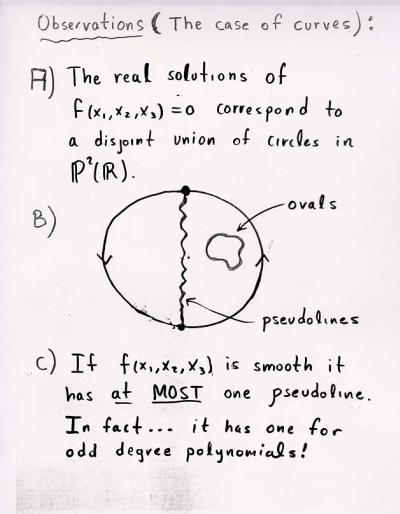 Observations (The case of curves):
A) The real solutions of
f(x₁,x₂,x₃)=0 correspond to
a disjoint union of circles in
ℙ²(ℝ).
B)
ovals
pseudolines
C) If f(x₁,x₂,x₃) is smooth it
has at MOST one pseudoline.
In fact... it has one for
odd degree polynomials!